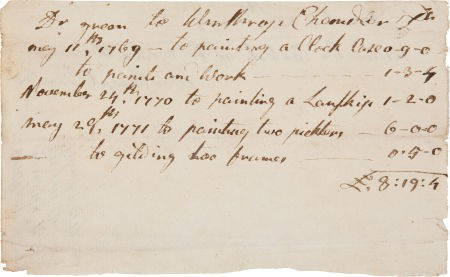 Dr green to Winthrop Chandler Dr.
may 11th, 1769 — to painting a Clock Case 0-9-0
to paints and work — 1-3-4
November 24th, 1770 to painting a Lanskip 1-2-0
may 29th, 1771 to painting two pickters — 6-0-0
— to gilding too frames — 0:5-0
£ 8:19:4